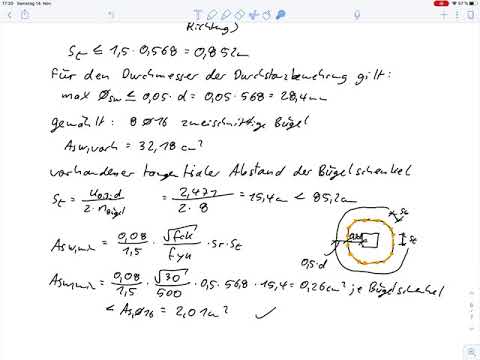 17:20 Samstag 14. Nov.
57 %
Richtung)
St ≤ 1,5 · 0,568 = 0,852m
Für den Durchmesser der Durchstanzbewehrung gilt:
max Øsw ≤ 0,05 · d = 0,05 · 568 = 28,4mm
gewählt: 8 Ø16 zweischnittige Bügel
Asw,vorh = 32,18 cm²
vorhandener tangentialer Abstand der Bügelschenkel
St = u0,5·d / 2·nBügel = 2,471 / 2·8 = 15,4cm < 85,2cm
Asw,min = 0,08/1,5 · √fck/fyk · Sr · St
Asw,min = 0,08/1,5 · √30/500 · 0,5 · 56,8 · 15,4 = 0,26cm² je Bügelschenkel
< As,Ø16 = 2,01cm² ✓
St
St
0,5·d